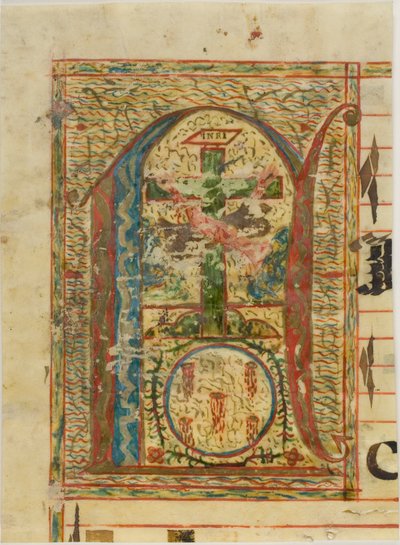 INRI
C